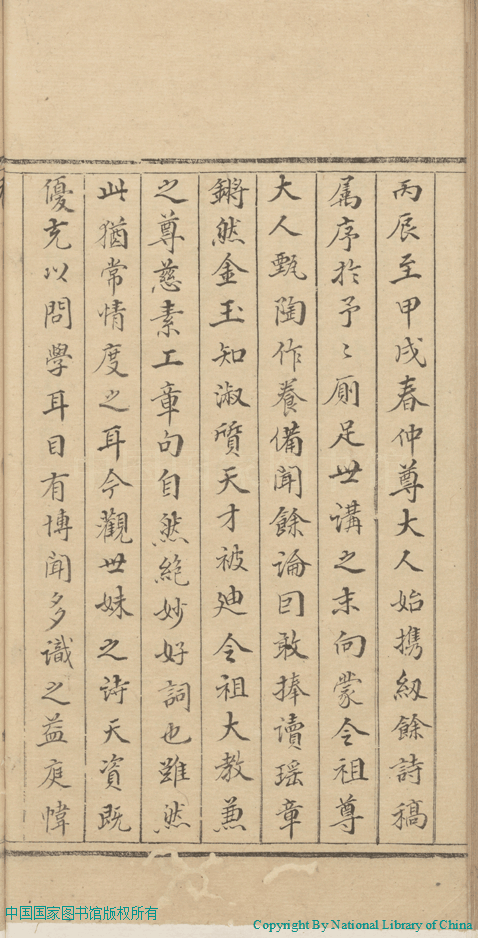 丙辰至甲戌春仲尊大人始携紉餘詩稿
属序於予〻厠足世講之末向蒙令祖尊
大人甄陶作養備聞餘論囙敢捧讀瑶章
鏘然金玉知淑質天才被廸令祖大教兼
之尊慈素工章句自然絶妙好詞也雖然
此猶常情度之耳今觀世妹之詩天資既
優充以問學耳目有博聞多識之益庭幃
中国国家图书馆版权所有
Copyright By National Library of China